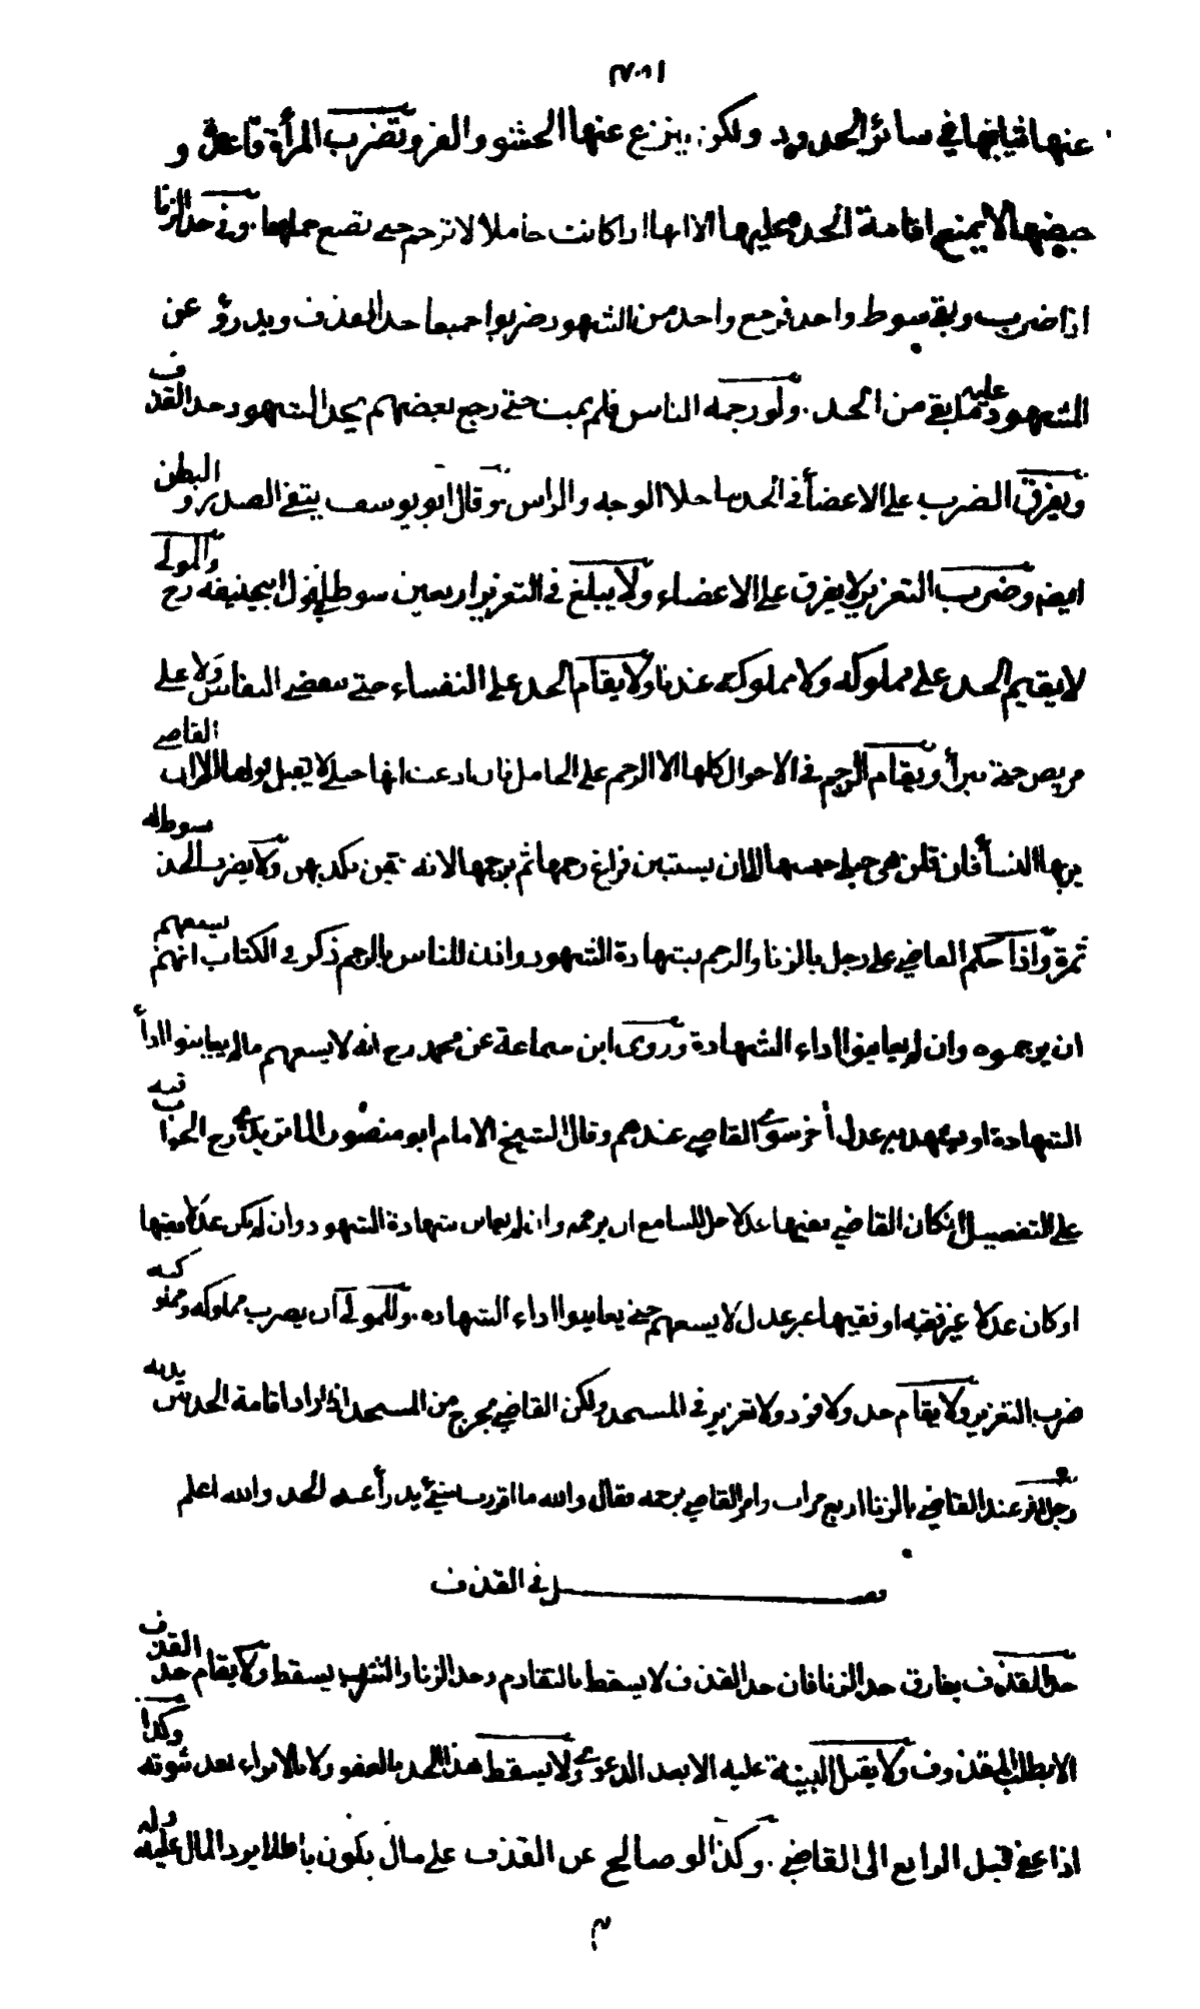 عنها ثيابها في سائر الحدود ولكن ينزع عنها الحشو والفرو وتضرب المرأة قاعدة و
حيضها لا يمنع اقامة الحد عليها الا انها اذا كانت حاملا لا ترجم حتى تضع حملها وفي حد الزنا
اذا ضرب وبقي سوط واحد فرجع واحد من الشهود ضربوا جميعا حد القذف ويدرؤ عن
المشهود عليه ما بقي من الحد ولو رجمه الناس فلم يمت حتى رجع بعضهم يحد الشهود حد القذف
ويفرق الضرب على الاعضأ في الحد ما خلا الوجه والراس وقال ابو يوسف يتقي الصدر والبطن
ايضا وضرب التعزير لا يفرق على الاعضاء ولا يبلغ في التعزير اربعين سوطا في قول ابي حنيفة رح والمولى
لا يقيم الحد على مملوكه ولا مملوكته عندنا ولا يقام الحد على النفساء حتى تنقضي النفاس ولا على
مريض حتى يبرأ ويقام الرجم في الاحوال كلها الا الرجم على الحامل فان ادعت انها حبلى لا يقبل قولها الا ان القاضي
يريها النسأ فان قلن هي حبلى حبسها الى ان يستبين فراغ رحمها ثم يرجمها لانه تيقن بكذبهن ولا يضرب الحد بسوط له
ثمرة واذا حكم القاضي على رجل بالزنا والرجم بشهادة الشهود واذن للناس بالرجم ذكر في الكتاب انهم يسعهم
ان يرجموه وان لم يعاينوا اداء الشهادة وروى ابن سماعة عن محمد رح انه لا يسعهم ما لم يعاينوا ادأ
الشهادة او يشهد عدل أخر سوى القاضي عندهم وقال الشيخ الامام ابو منصور الماتريدي رح الجواب فيه
على التفصيل ان كان القاضي فقيها عدلا حل للسامع ان يرجمه وان لم يعاين شهادة الشهود وان لم يكن عدلا فقيها
او كان عدلا غير فقيه او فقيها غير عدل لا يسعهم حتى يعاينوا اداء الشهادة وللمولى ان يضرب مملوكه ومملوكته
ضرب التعزير ولا يقام حد ولا قود ولا تعزير في المسجد ولكن القاضي يخرج من المسجد اذا اراد اقامة الحد بين يديه
رجل اقر عند القاضي بالزنا اربع مرات وامر القاضي برجمه فقال والله ما اقررت بشيء يدرأ عنه الحد والله اعلم
فصل في القذف
حد القذف يفارق حد الزنا فان حد القذف لا يسقط بالتقادم وحد الزنا والشرب يسقط ولا يقام حد القذف
الا بطلب المقذوف ولا يقبل البينة عليه الا بعد الدعوى ولا يسقط هذا الحد بالعفو ولا بالابراء بعد ثبوته وكذا
اذا عفى قبل الرفع الى القاضي وكذا لو صالح عن القذف على مال يكون باطلا يرد المال عليه وله